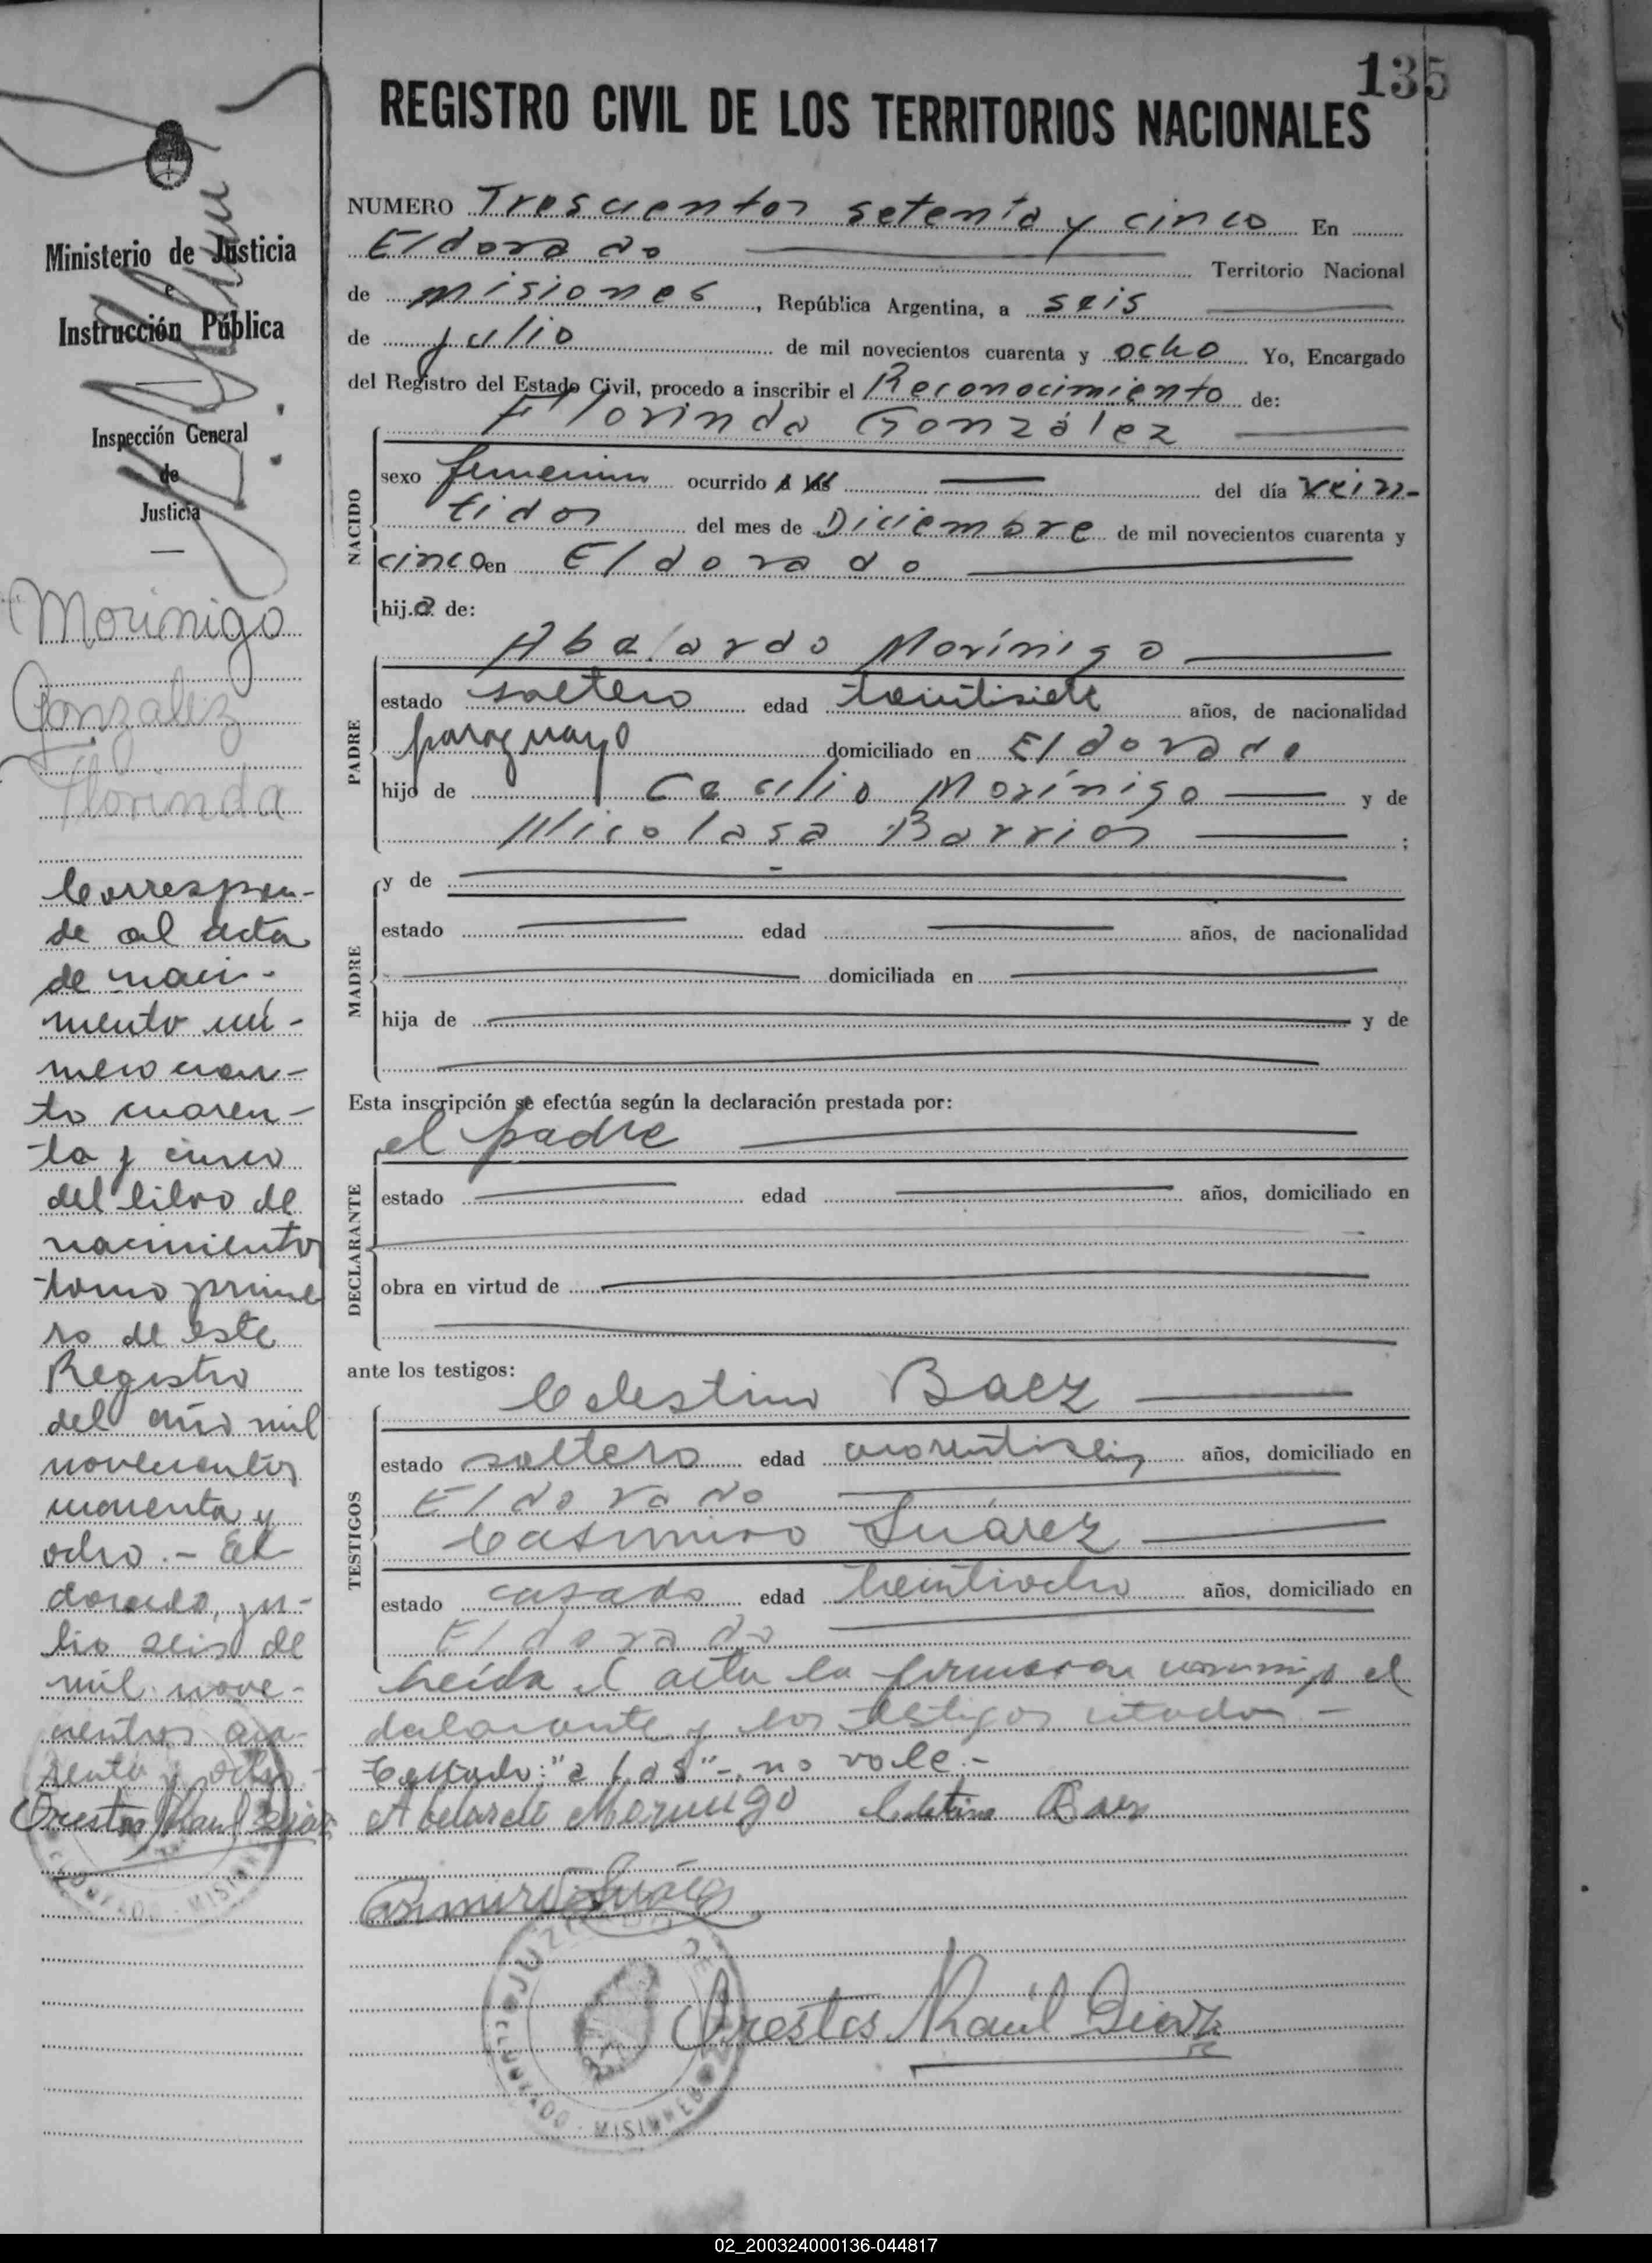 135
REGISTRO CIVIL DE LOS TERRITORIOS NACIONALES
Ministerio de Justicia
e
Instrucción Pública
Inspección General
de
Justicia
Morinigo
Gonzalez
Florinda
Correspon-
de al acta
de naci-
miento nú-
mero cien-
to cuaren-
ta y cinco
del libro de
nacimientos
tomo prime
ro de este
Registro
del año mil
novecientos
cuarenta y
ocho.- El
dorado, ju-
lio seis de
mil nove-
cientos cua-
renta y ocho.-
Orestes Raul Diaz
NUMERO Trescientos setenta y cinco En
Eldorado Territorio Nacional
de misiones, República Argentina, a seis
de julio de mil novecientos cuarenta y ocho Yo, Encargado
del Registro del Estado Civil, procedo a inscribir el Reconocimiento de:
Florinda González
NACIDO
sexo femenino ocurrido a las del día vein-
tidos del mes de Diciembre de mil novecientos cuarenta y
cinco en Eldorado
hij.a de:
Abelardo Morínigo
PADRE
estado soltero edad treintisiete años, de nacionalidad
paraguayo domiciliado en Eldorado
hijo de Cecilio Morínigo y de
Nicolasa Barrios ;
MADRE
y de
estado edad años, de nacionalidad
domiciliada en
hija de y de
Esta inscripción se efectúa según la declaración prestada por:
el padre
DECLARANTE
estado edad años, domiciliado en
obra en virtud de
ante los testigos:
TESTIGOS
Celestino Baez
estado soltero edad cuarentiseis años, domiciliado en
Eldorado
Casimiro Suárez
estado casado edad treintiocho años, domiciliado en
Eldorado
Leída el acta la firmaron conmigo el
declarante y los testigos citados -
Testado: "a las" -, no vale.-
Abelardo Morinigo Celestino Baez
Casimiro Suárez
Orestes Raúl Diaz
JUZGADO DE
ELDORADO - MISIONES
02_200324000136-044817